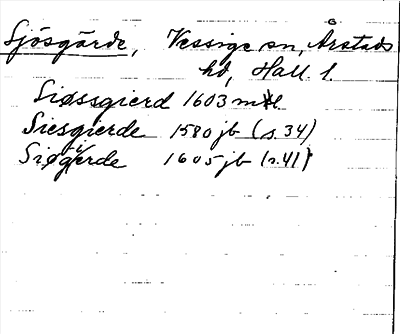 Sjösgärde, Vessige sn, Årstads
hd, Hall. l.
Siøssgierd 1603 mtl
Siesgierde 1580 jb (s. 34)
Siøgierde 1605 jb (s. 41)